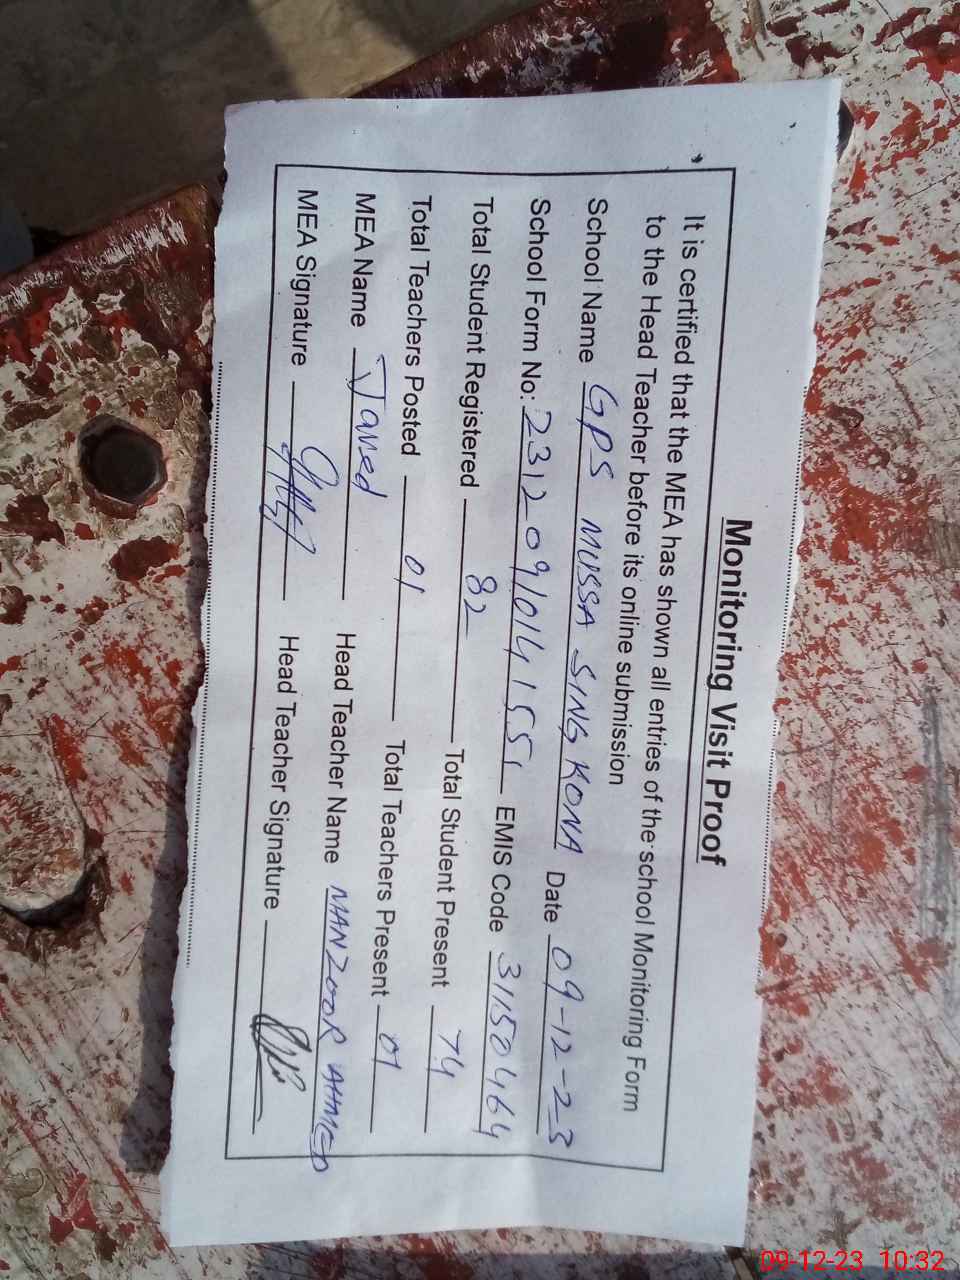 Monitoring Visit Proof
It is certified that the MEA has shown all entries of the school Monitoring Form
to the Head Teacher before its online submission
School Name GPS MUSSA SING KONA Date 09-12-23
School Form No: 23120910141551 EMIS Code 31150464
Total Student Registered 82 Total Student Present 74
Total Teachers Posted 01 Total Teachers Present 01
MEA Name Javed Head Teacher Name MANZOOR AHMED
MEA Signature Head Teacher Signature
09-12-23 10:32